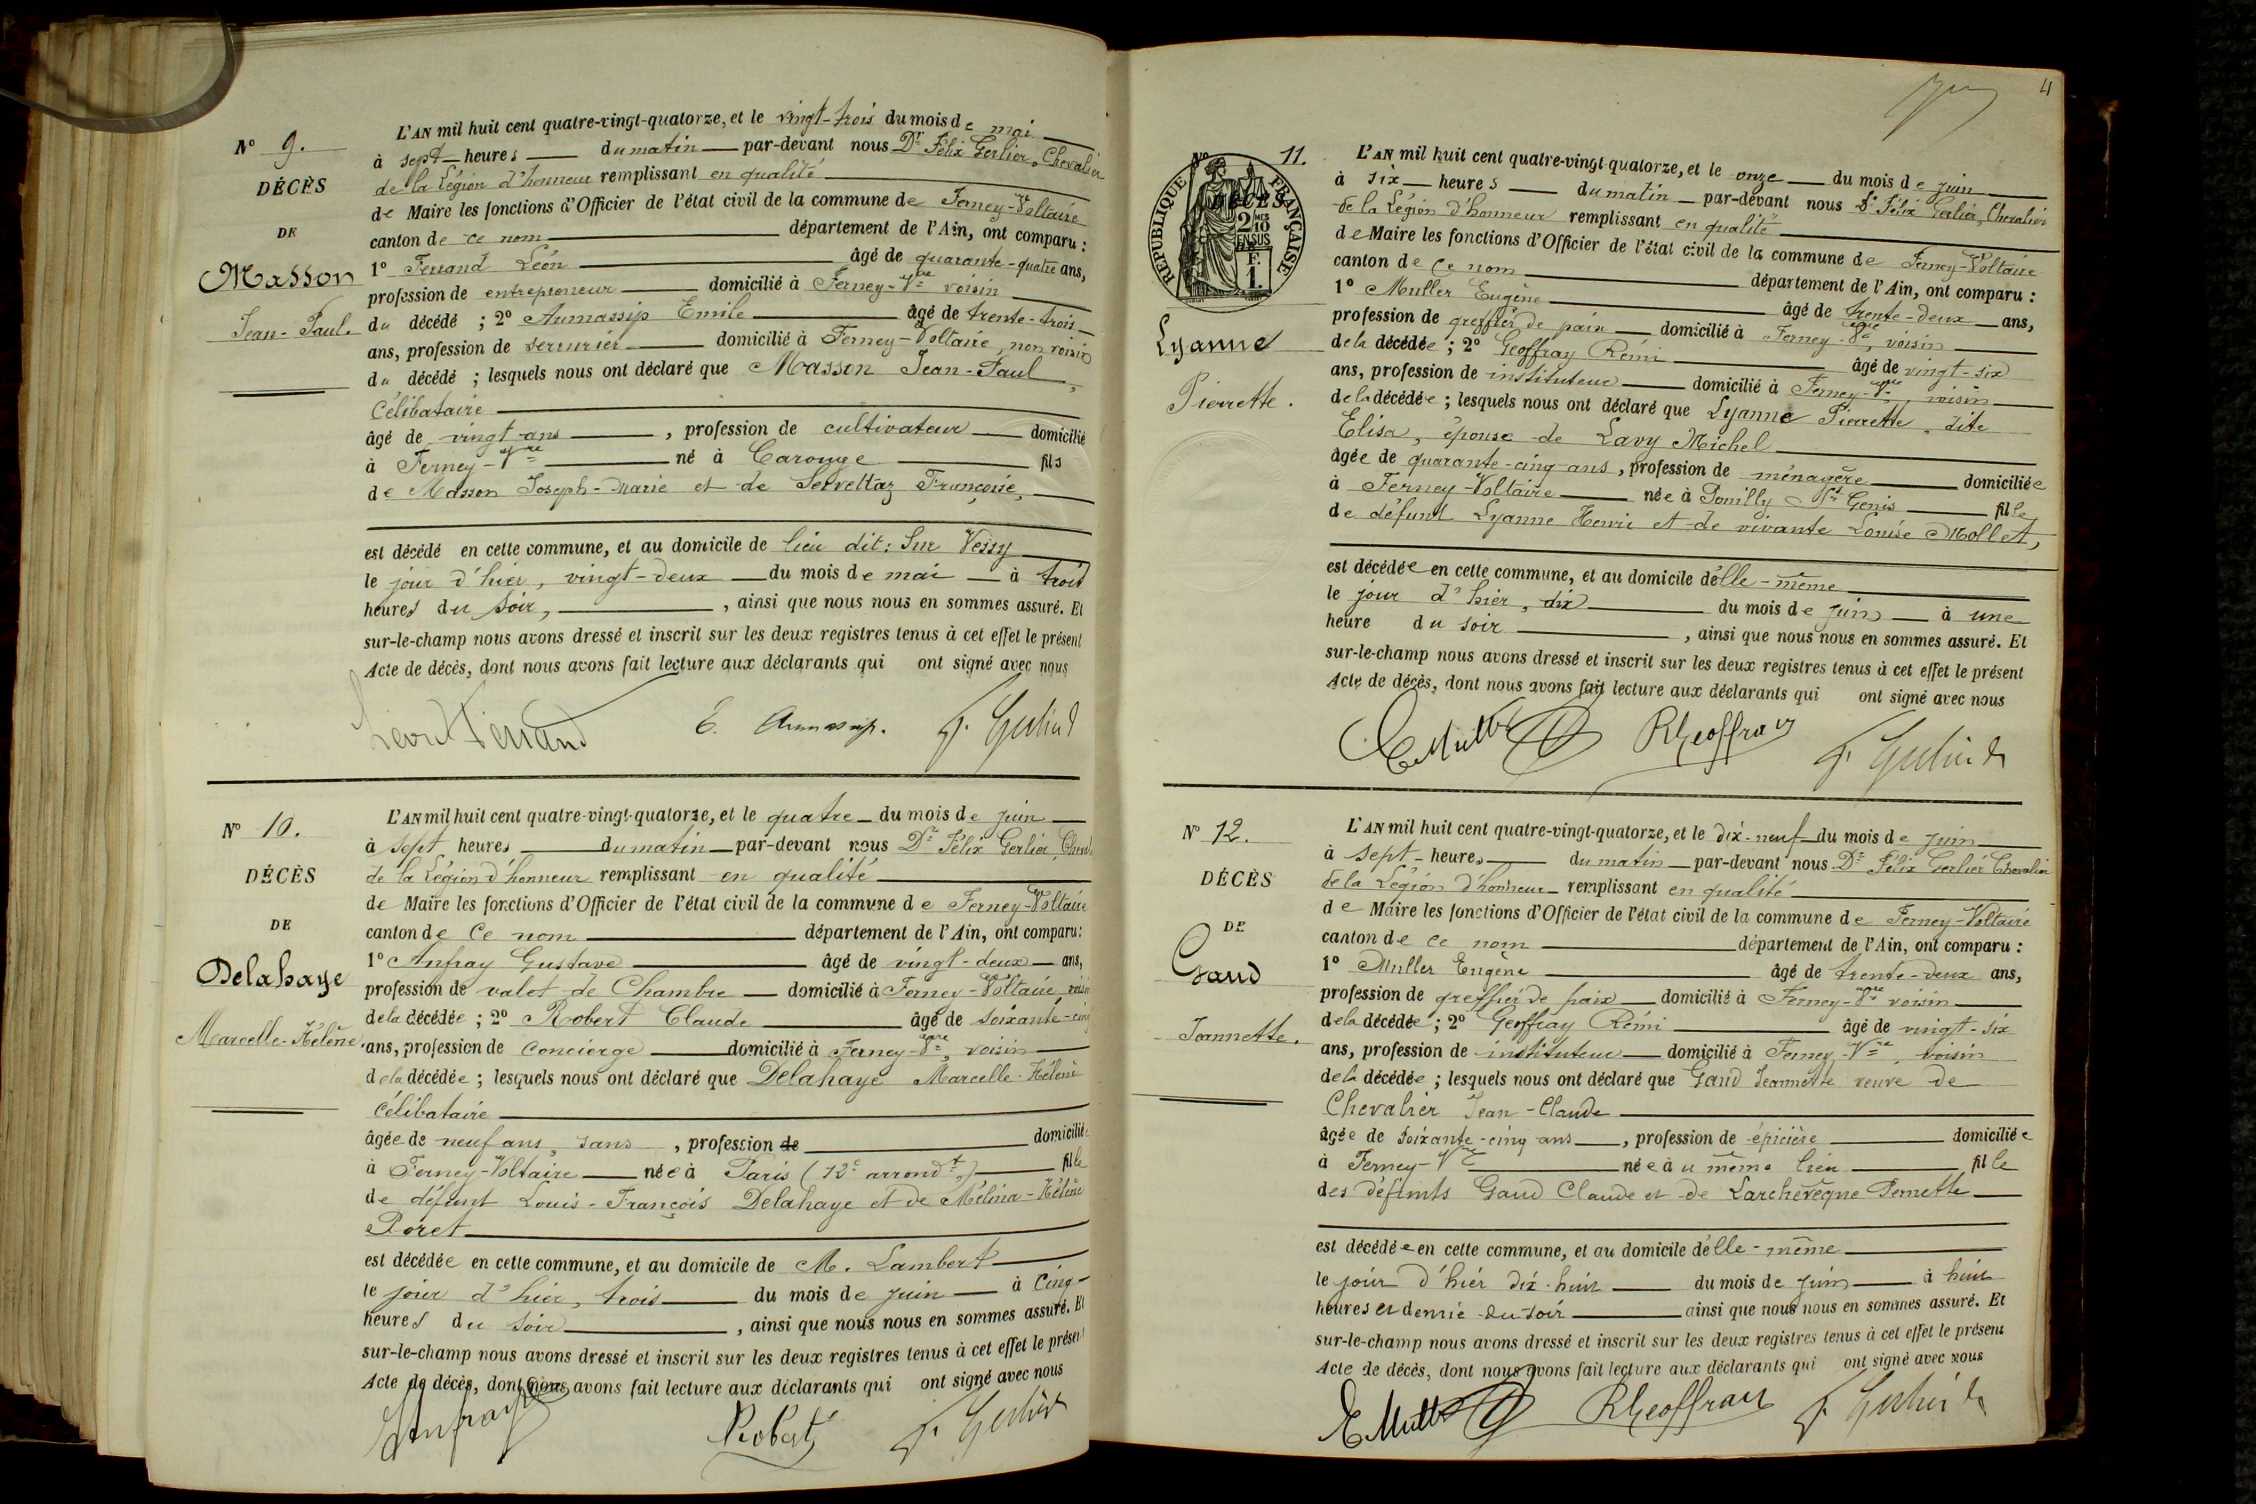 Nº 9.
DÉCÈS
DE
Masson
Jean-Paul
L'AN mil huit cent quatre-vingt-quatorze, et le vingt-trois du mois de mai
à sept heures du matin par-devant nous Dr Félix Gerlier, Chevalier
de la Légion d'honneur remplissant en qualité
de Maire les fonctions d'Officier de l'état civil de la commune de Ferney-Voltaire
canton de ce nom département de l'Ain, ont comparu :
1º Ferrand Léon âgé de quarante-quatre ans,
profession de entrepreneur domicilié à Ferney-Vre voisin
du décédé ; 2º Aumassip Emile âgé de trente-trois
ans, profession de serrurier domicilié à Ferney-Voltaire, non voisin
du décédé ; lesquels nous ont déclaré que Masson Jean-Paul,
Célibataire
âgé de vingt ans, profession de cultivateur domicilié
à Ferney-Vre né à Carouge fils
de Masson Joseph-Marie et de Servettaz Françoise,
est décédé en cette commune, et au domicile de lieu dit: Sur Vessy
le jour d'hier, vingt-deux du mois de mai à trois
heures du soir, , ainsi que nous nous en sommes assuré. Et
sur-le-champ nous avons dressé et inscrit sur les deux registres tenus à cet effet le présent
Acte de décès, dont nous avons fait lecture aux déclarants qui ont signé avec nous
Léon Ferrand E. Aumassip. F. Gerlier
Nº 10.
DÉCÈS
DE
Delahaye
Marcelle-Hélène.
L'AN mil huit cent quatre-vingt-quatorze, et le quatre du mois de juin
à sept heures du matin par-devant nous Dr Félix Gerlier, Cheval
de la Légion d'honneur remplissant en qualité
de Maire les fonctions d'Officier de l'état civil de la commune de Ferney-Voltaire
canton de Ce nom département de l'Ain, ont comparu:
1º Anfray Gustave âgé de vingt-deux ans,
profession de valet de Chambre domicilié à Ferney-Voltaire, voisin
de la décédée ; 2º Robert Claude âgé de soixante-cinq
ans, profession de Concierge domicilié à Ferney-Vre, voisin
de la décédée ; lesquels nous ont déclaré que Delahaye Marcelle-Hélène
Célibataire
âgée de neuf ans, sans , profession de domiciliée
à Ferney-Voltaire née à Paris (12e arrondt) fille
de défunt Louis-François Delahaye et de Mélina-Hélène
Poret
est décédée en cette commune, et au domicile de M. Lambert
le jour d'hier, trois du mois de juin à Cinq
heures du soir , ainsi que nous nous en sommes assuré. Et
sur-le-champ nous avons dressé et inscrit sur les deux registres tenus à cet effet le présent
Acte de décès, dont nous avons fait lecture aux déclarants qui ont signé avec nous
Anfray Robert F. Gerlier
4
Nº 11.
DÉCÈS
RÉPUBLIQUE FRANÇAISE
2/10 EN SUS
1 F.
Lyanne
Pierrette.
L'AN mil huit cent quatre-vingt-quatorze, et le onze du mois de juin
à six heures du matin par-devant nous Dr Félix Gerlier, Chevalier
de la Légion d'honneur remplissant en qualité
de Maire les fonctions d'Officier de l'état civil de la commune de Ferney-Voltaire
canton de Ce nom département de l'Ain, ont comparu :
1º Muller Eugène âgé de trente-deux ans,
profession de greffier de paix domicilié à Ferney-Vre, voisin
de la décédée ; 2º Geoffray Rémi âgé de vingt-six
ans, profession de instituteur domicilié à Ferney-Vre, voisin
de la décédée ; lesquels nous ont déclaré que Lyanne Pierrette, dite
Elisa, épouse de Lavy Michel
âgée de quarante-cinq ans, profession de ménagère domiciliée
à Ferney-Voltaire née à Pouilly St Genis fille
de défunt Lyanne Henri et de vivante Louise Mollet,
est décédée en cette commune, et au domicile d'elle-même
le jour d'hier, dix du mois de juin à une
heure du soir , ainsi que nous nous en sommes assuré. Et
sur-le-champ nous avons dressé et inscrit sur les deux registres tenus à cet effet le présent
Acte de décès, dont nous avons fait lecture aux déclarants qui ont signé avec nous
E Muller RGeoffray F. Gerlier
Nº 12.
DÉCÈS
DE
Gaud
Jeannette.
L'AN mil huit cent quatre-vingt-quatorze, et le dix-neuf du mois de juin
à sept heures du matin par-devant nous Dr Félix Gerlier Chevalier
de la Légion d'honneur remplissant en qualité
de Maire les fonctions d'Officier de l'état civil de la commune de Ferney-Voltaire
canton de ce nom département de l'Ain, ont comparu :
1º Muller Eugène âgé de trente-deux ans,
profession de greffier de paix domicilié à Ferney-Vre voisin
de la décédée ; 2º Geoffray Rémi âgé de vingt-six
ans, profession de instituteur domicilié à Ferney-Vre, voisin
de la décédée ; lesquels nous ont déclaré que Gaud Jeannette veuve de
Chevalier Jean-Claude
âgée de soixante-cinq ans, profession de épicière domiciliée
à Ferney-Vre née au même lieu fille
des défunts Gaud Claude et de Larchevêque Pernette
est décédée en cette commune, et au domicile d'elle-même
le jour d'hier dix-huit du mois de juin à huit
heures et demie du soir ainsi que nous nous en sommes assuré. Et
sur-le-champ nous avons dressé et inscrit sur les deux registres tenus à cet effet le présent
Acte de décès, dont nous avons fait lecture aux déclarants qui ont signé avec nous
E Muller RGeoffray F. Gerlier